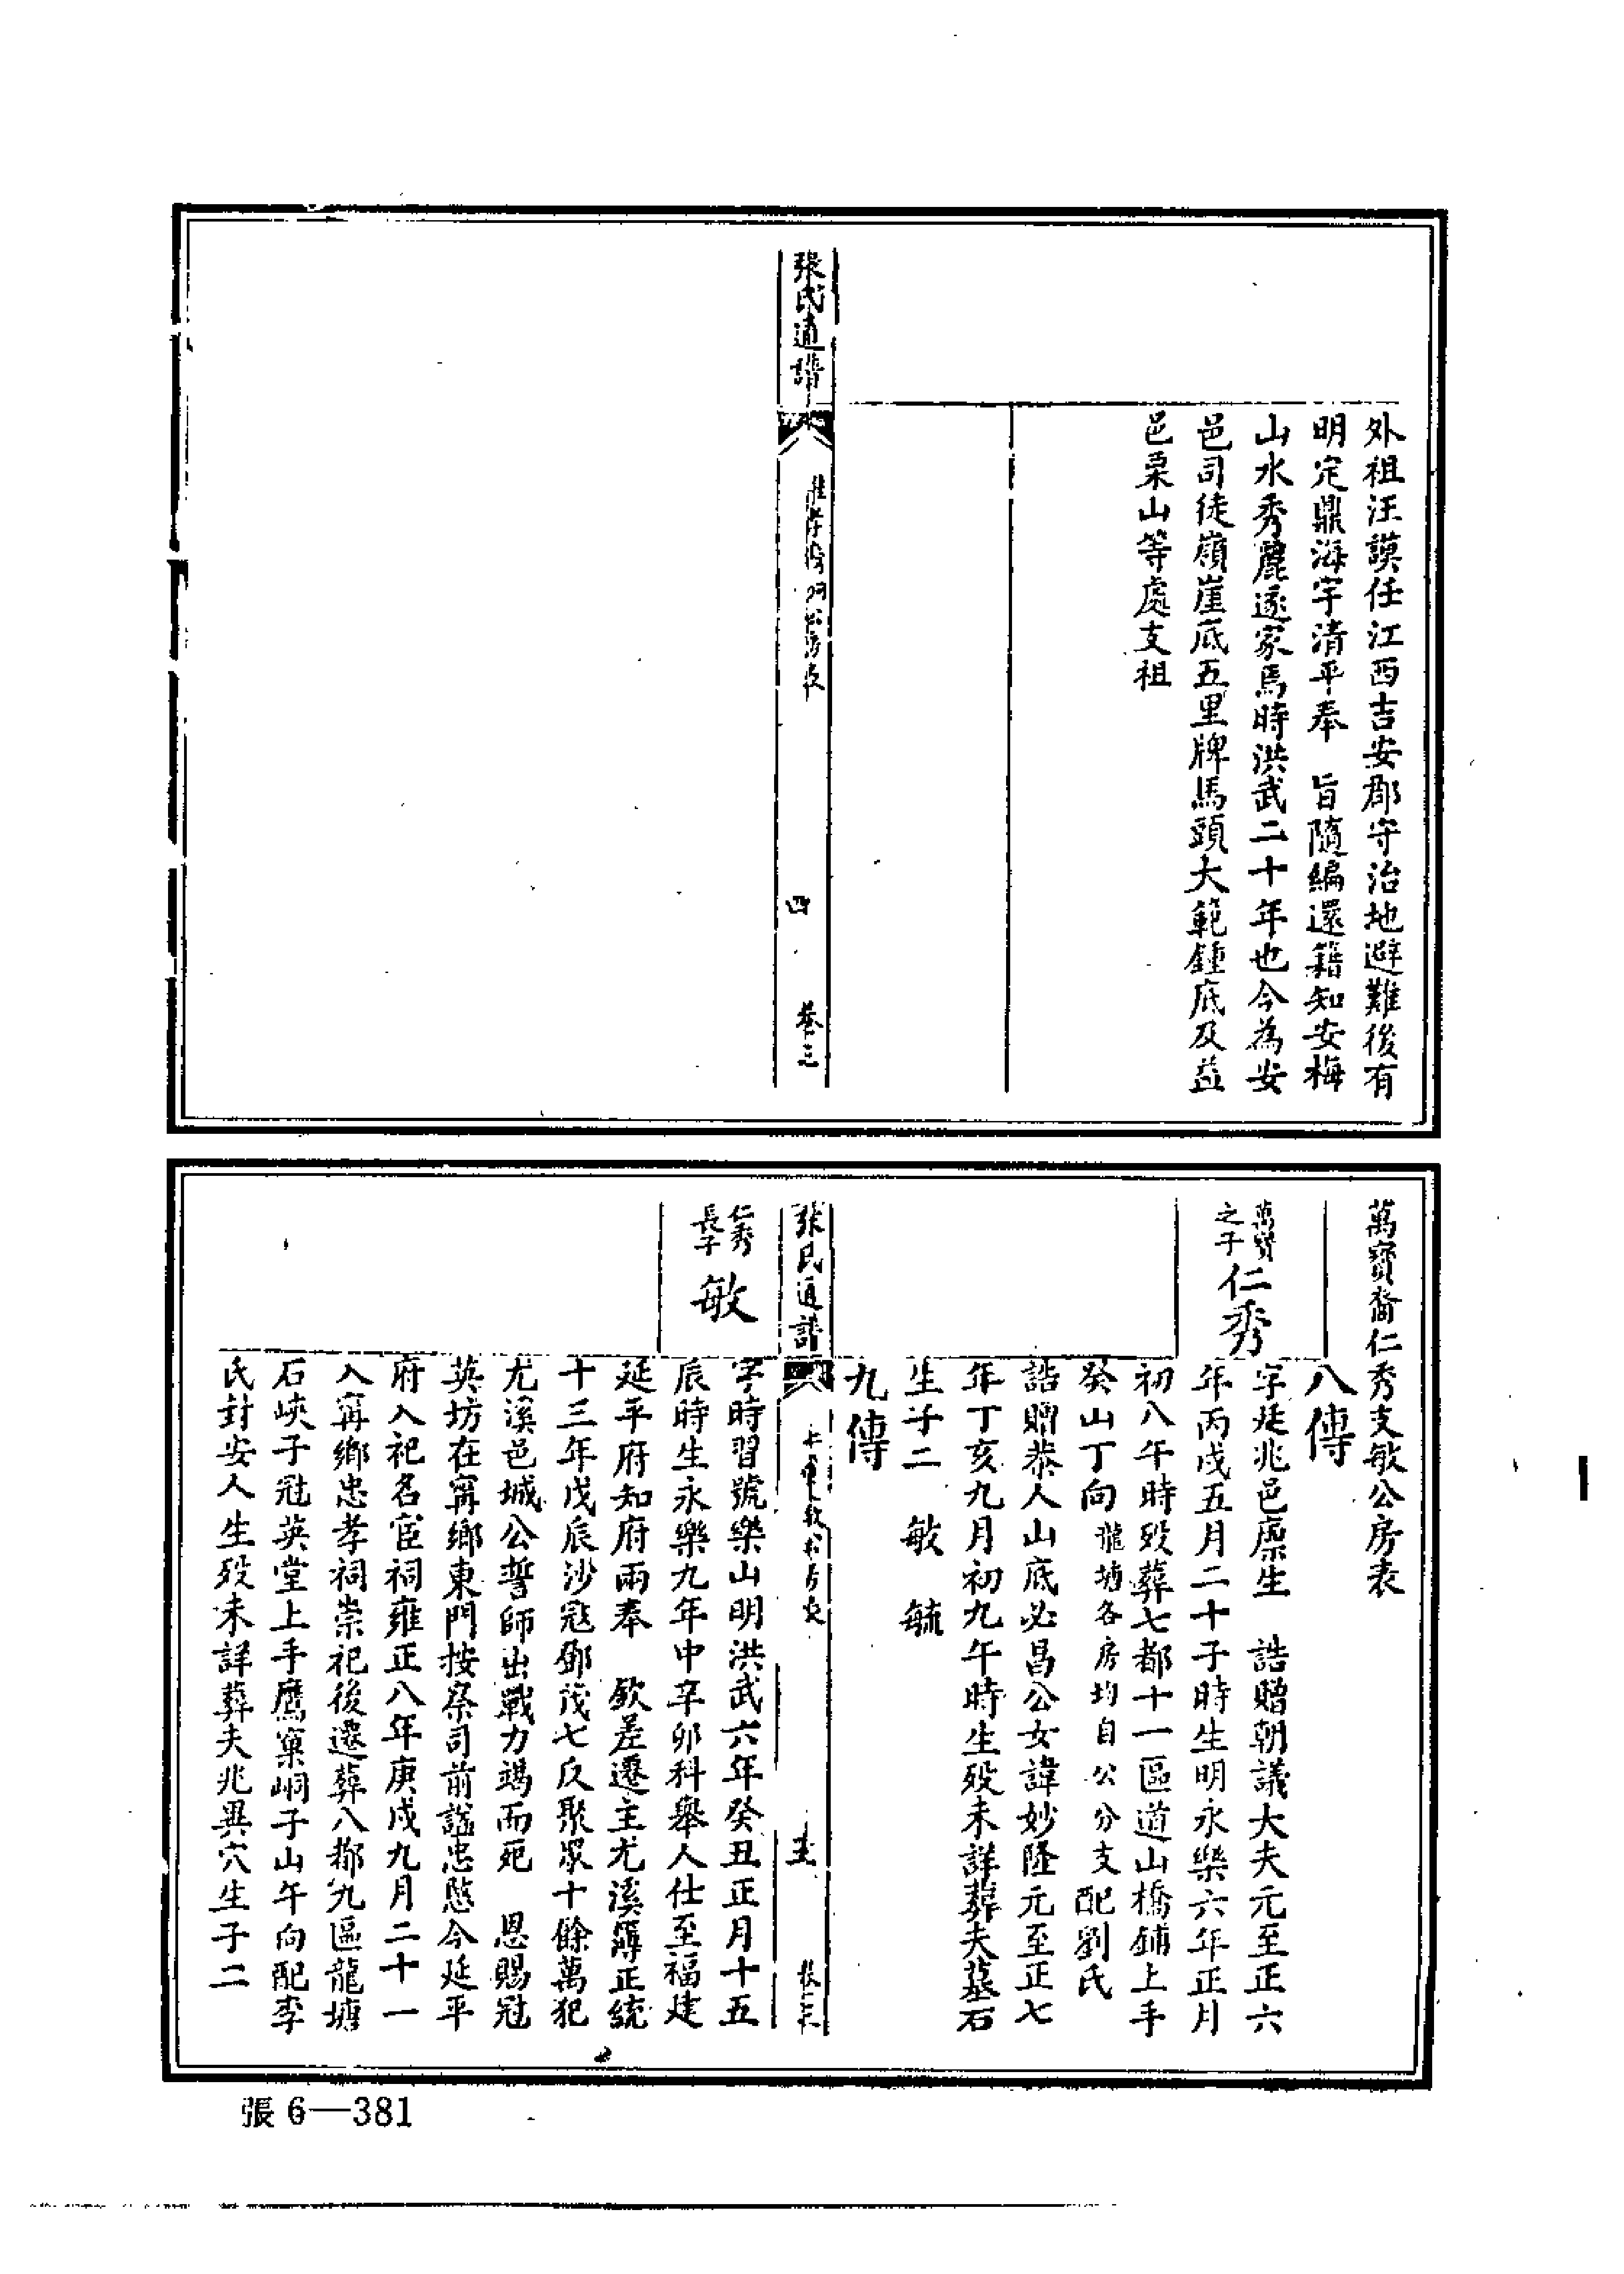 外祖汪謨任江西吉安郡守治地避難後有
明定鼎海宇清平奉　旨隨編還籍知安梅
山水秀麗遂家焉時洪武二十年也今為安
邑司徒嶺崖底五里牌馬頭大範鍾底及益
邑栗山等處支祖
張氏通譜
四
卷三
萬寶裔仁秀支敏公房表
八傳
萬寶之子
仁秀
字廷兆邑廩生　誥贈朝議大夫元至正六
年丙戌五月二十子時生明永樂六年正月
初八午時歿葬七都十一區道山橋鋪上手
癸山丁向龍塘各房均自公分支配劉氏
誥贈恭人山底必昌公女諱妙隆元至正七
年丁亥九月初九午時生歿未詳葬夫墓右
生子二　敏　毓
九傳
張氏通譜
仁秀長子
敏
字時習號樂山明洪武六年癸丑正月十五
辰時生永樂九年中辛卯科舉人仕至福建
延平府知府兩奉　欽差遷主尤溪簿正統
十三年戊辰沙冦鄧茂七反聚眾十餘萬犯
尤溪邑城公誓師出戰力竭而死　恩賜冠
英坊在甯鄉東門按察司前諡忠愍今延平
府入祀名宦祠雍正八年庚戌九月二十一
入甯鄉忠孝祠崇祀後遷葬八都九區龍塘
石峽子冠英堂上手鷹窠峒子山午向配李
氏封安人生歿未詳葬夫兆異穴生子二
張6—381